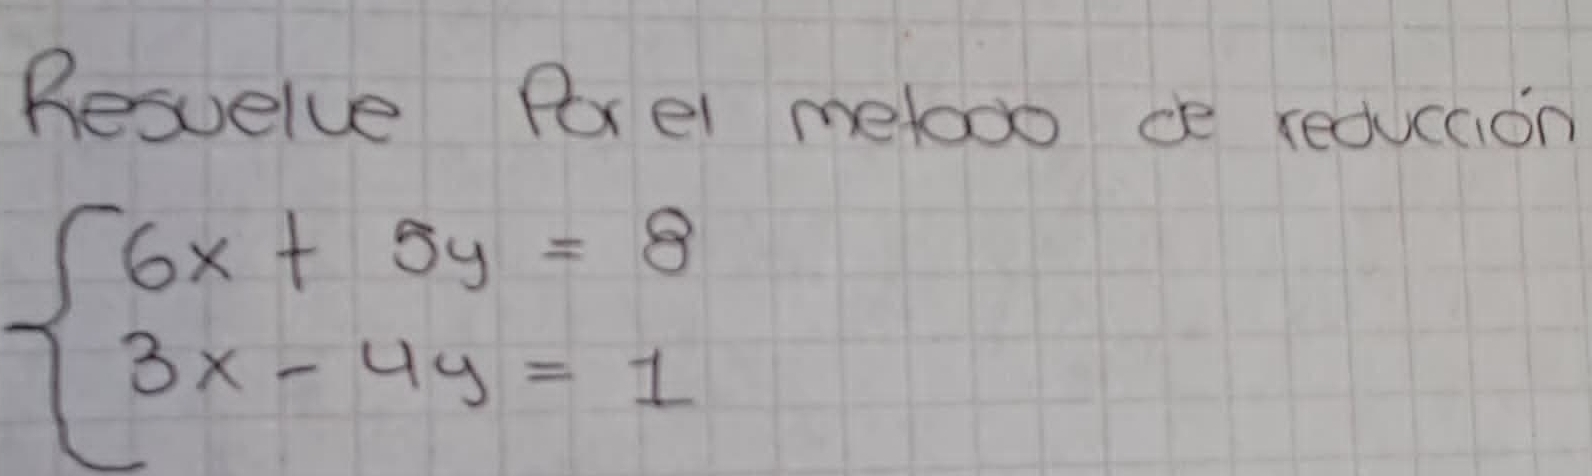 Resuelve Por el metodo de reducción
6x + 5y = 8
3x - 4y = 1